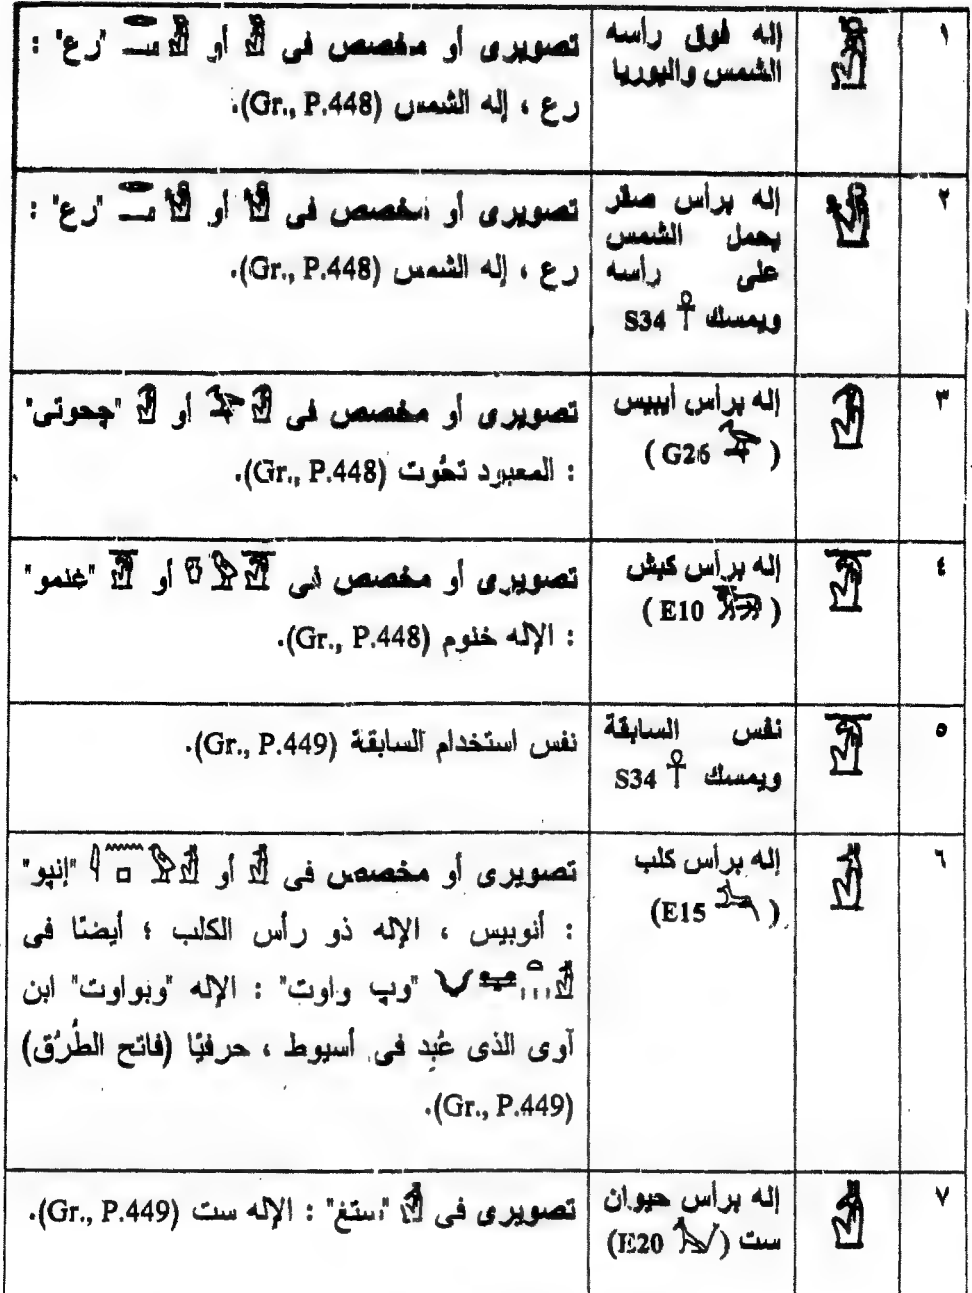 ١
إله فوق رأسه
الشمس واليوريا
تصويرى أو مخصص فى 𓁚 أو 𓂋𓂝𓁚 "رع" :
رع ، إله الشمس (Gr., P.448).
٢
إله برأس صقر
يحمل الشمس
على رأسه
ويمسك 𓋹 S34
تصويرى أو مخصص فى 𓁛 أو 𓂋𓂝𓁛 "رع" :
رع ، إله الشمس (Gr., P.448).
٣
إله برأس أيبيس
( 𓅝 G26 )
تصويرى أو مخصص فى 𓅝𓁟 أو 𓁟 "جحوتى"
: المعبود تحُوت (Gr., P.448).
٤
إله برأس كبش
( 𓃝 E10 )
تصويرى أو مخصص فى 𓎸𓅱𓁠 أو 𓁠 "غنمو"
: الإله خنوم (Gr., P.448).
٥
نفس السابقة
ويمسك 𓋹 S34
نفس استخدام السابقة (Gr., P.449).
٦
إله برأس كلب
( 𓃢 E15)
تصويرى أو مخصص فى 𓁢 أو 𓇋𓈖𓊪𓅱𓁢 "إنپو"
: أنوبيس ، الإله ذو رأس الكلب ؛ أيضًا فى
𓄋𓈐𓏏𓏥𓁢 "وپ واوت" : الإله "وبواوت" ابن
آوى الذى عُبِد فى أسيوط ، حرفيًا (فاتح الطُّرُق)
(Gr., P.449).
٧
إله برأس حيوان
ست (𓃩 E20)
تصويرى فى 𓁣 "ستغ" : الإله ست (Gr., P.449).